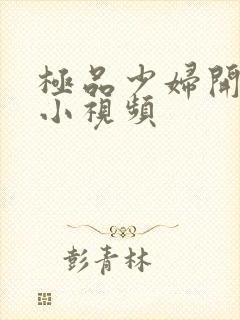 極品少婦開
小視頻
彭青林